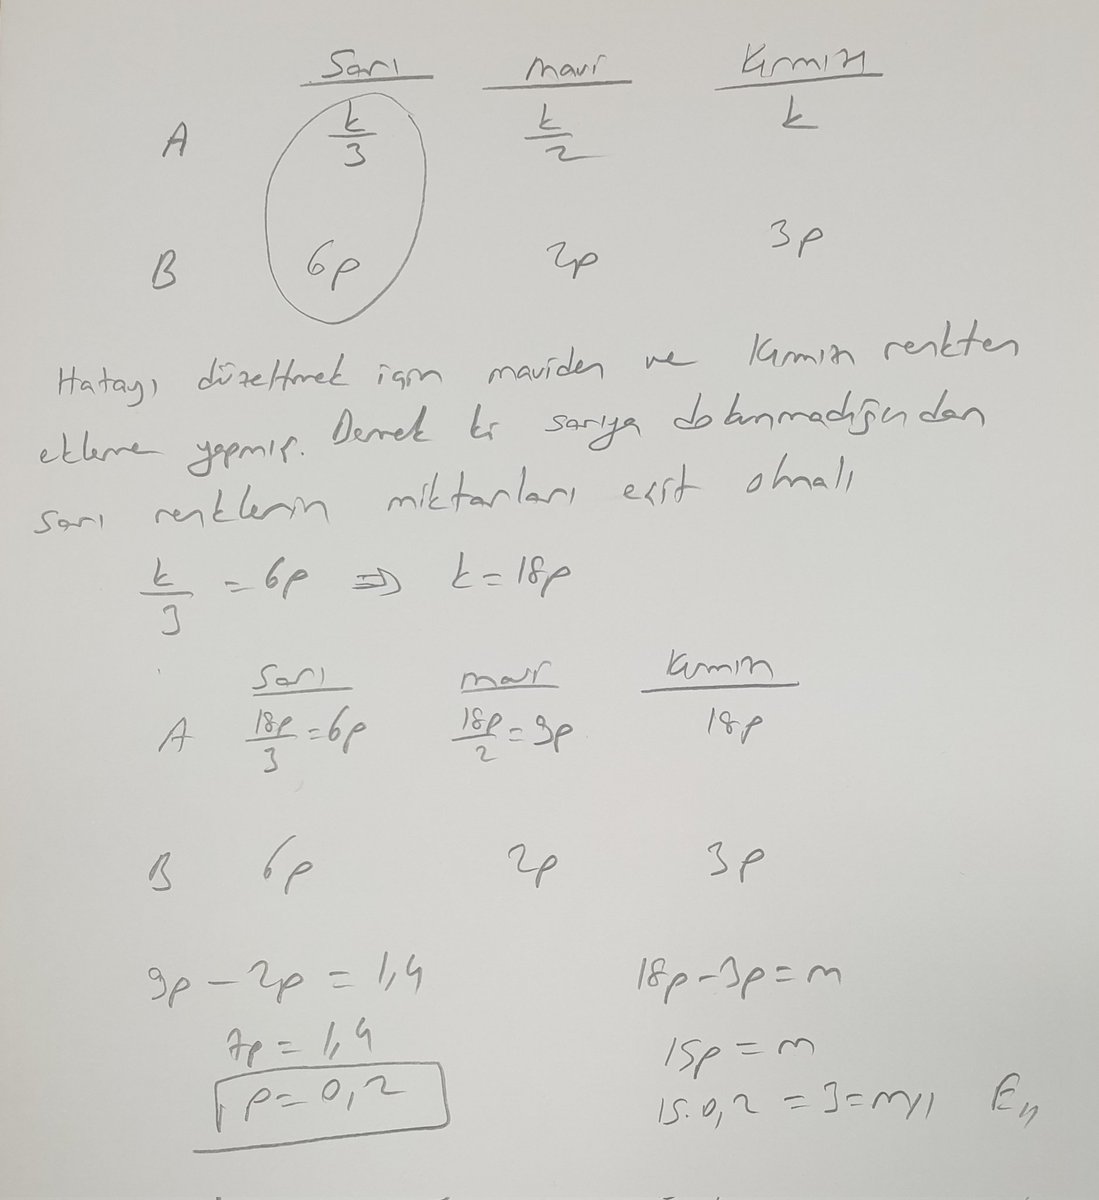 Sarı mavi Kırmızı
A k/3 k/2 k
B 6p 2p 3p
Hatayı düzeltmek için maviden ve kırmızı renkten
ekleme yapmış. Demek ki sarıya dokunmadığından
sarı renklerin miktarları eşit olmalı
k/3 = 6p ⇒ k = 18p
Sarı mavi Kırmızı
A 18p/3 = 6p 18p/2 = 9p 18p
B 6p 2p 3p
9p - 2p = 1,4 18p - 3p = m
7p = 1,4 15p = m
p = 0,2 15.0,2 = 3 = m// E//